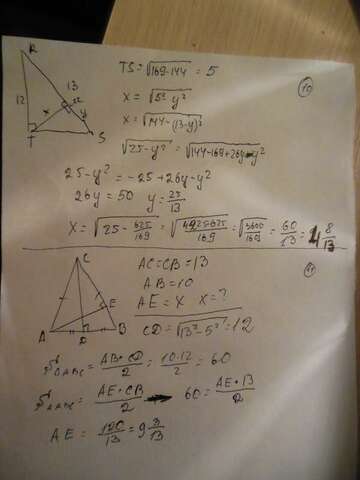 R
12
13
x
y
T
S
TS = √169-144 = 5
10
x = √5² y²
x = √144-(13-y)²
√25-y² = √144-169+26y-y²
25-y² = -25+26y-y²
26y = 50 y = 25/13
x = √25 - 625/169 = √4225-625/169 = √3600/169 = 60/13 = 4 8/13
C
A
D
B
E
AC=CB=13
AB=10
AE = x x = ?
CD = √13²-5² = 12
S△ABC = AB·CD/2 = 10·12/2 = 60
S△ABC = AE·CB/2 60 = AE·13/2
AE = 120/13 = 9 3/13